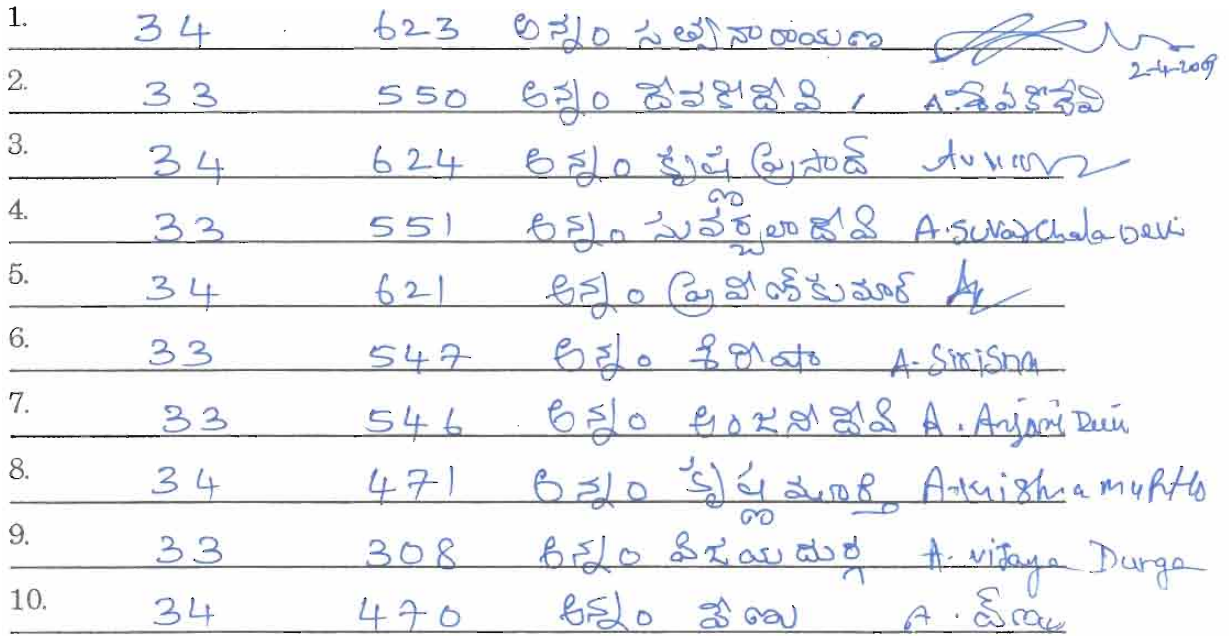 1. 34 623 అన్నం సత్యనారాయణ 2-4-2009
2. 33 550 అన్నం దేవకీదేవి, A. దేవకీదేవి
3. 34 624 అన్నం కృష్ణ ప్రసాద్
4. 33 551 అన్నం సువర్చలాదేవి A.Suvarchala Devi
5. 34 621 అన్నం ప్రవీణ్‌కుమార్
6. 33 547 అన్నం శిరీషా A-Sirisha
7. 33 546 అన్నం అంజనీదేవి A. Anjani Devi
8. 34 471 అన్నం కృష్ణమూర్తి A.Krishnamurthy
9. 33 308 అన్నం విజయదుర్గ A. Vijaya Durga
10. 34 470 అన్నం వేణు A.